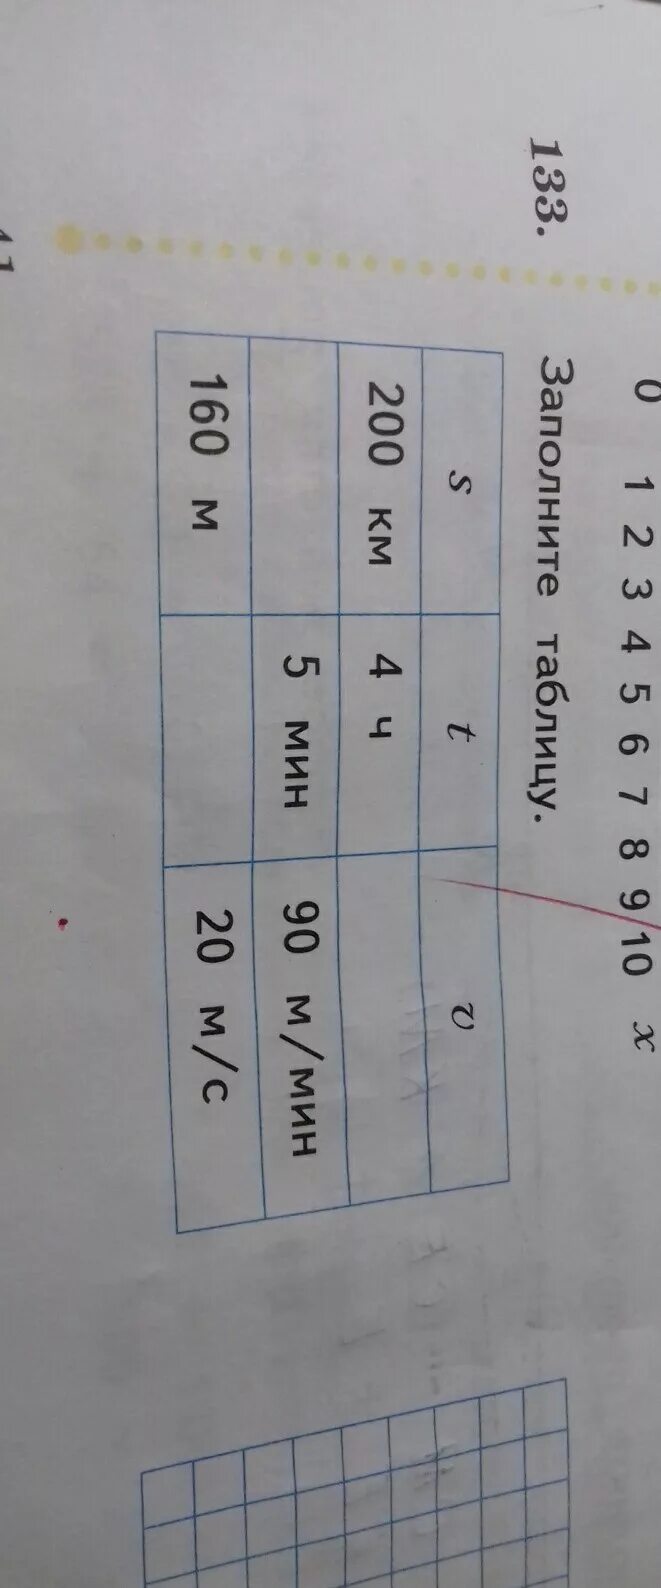 0 1 2 3 4 5 6 7 8 9 10 x
133. Заполните таблицу.
s t v
200 км 4 ч
5 мин 90 м/мин
160 м 20 м/с